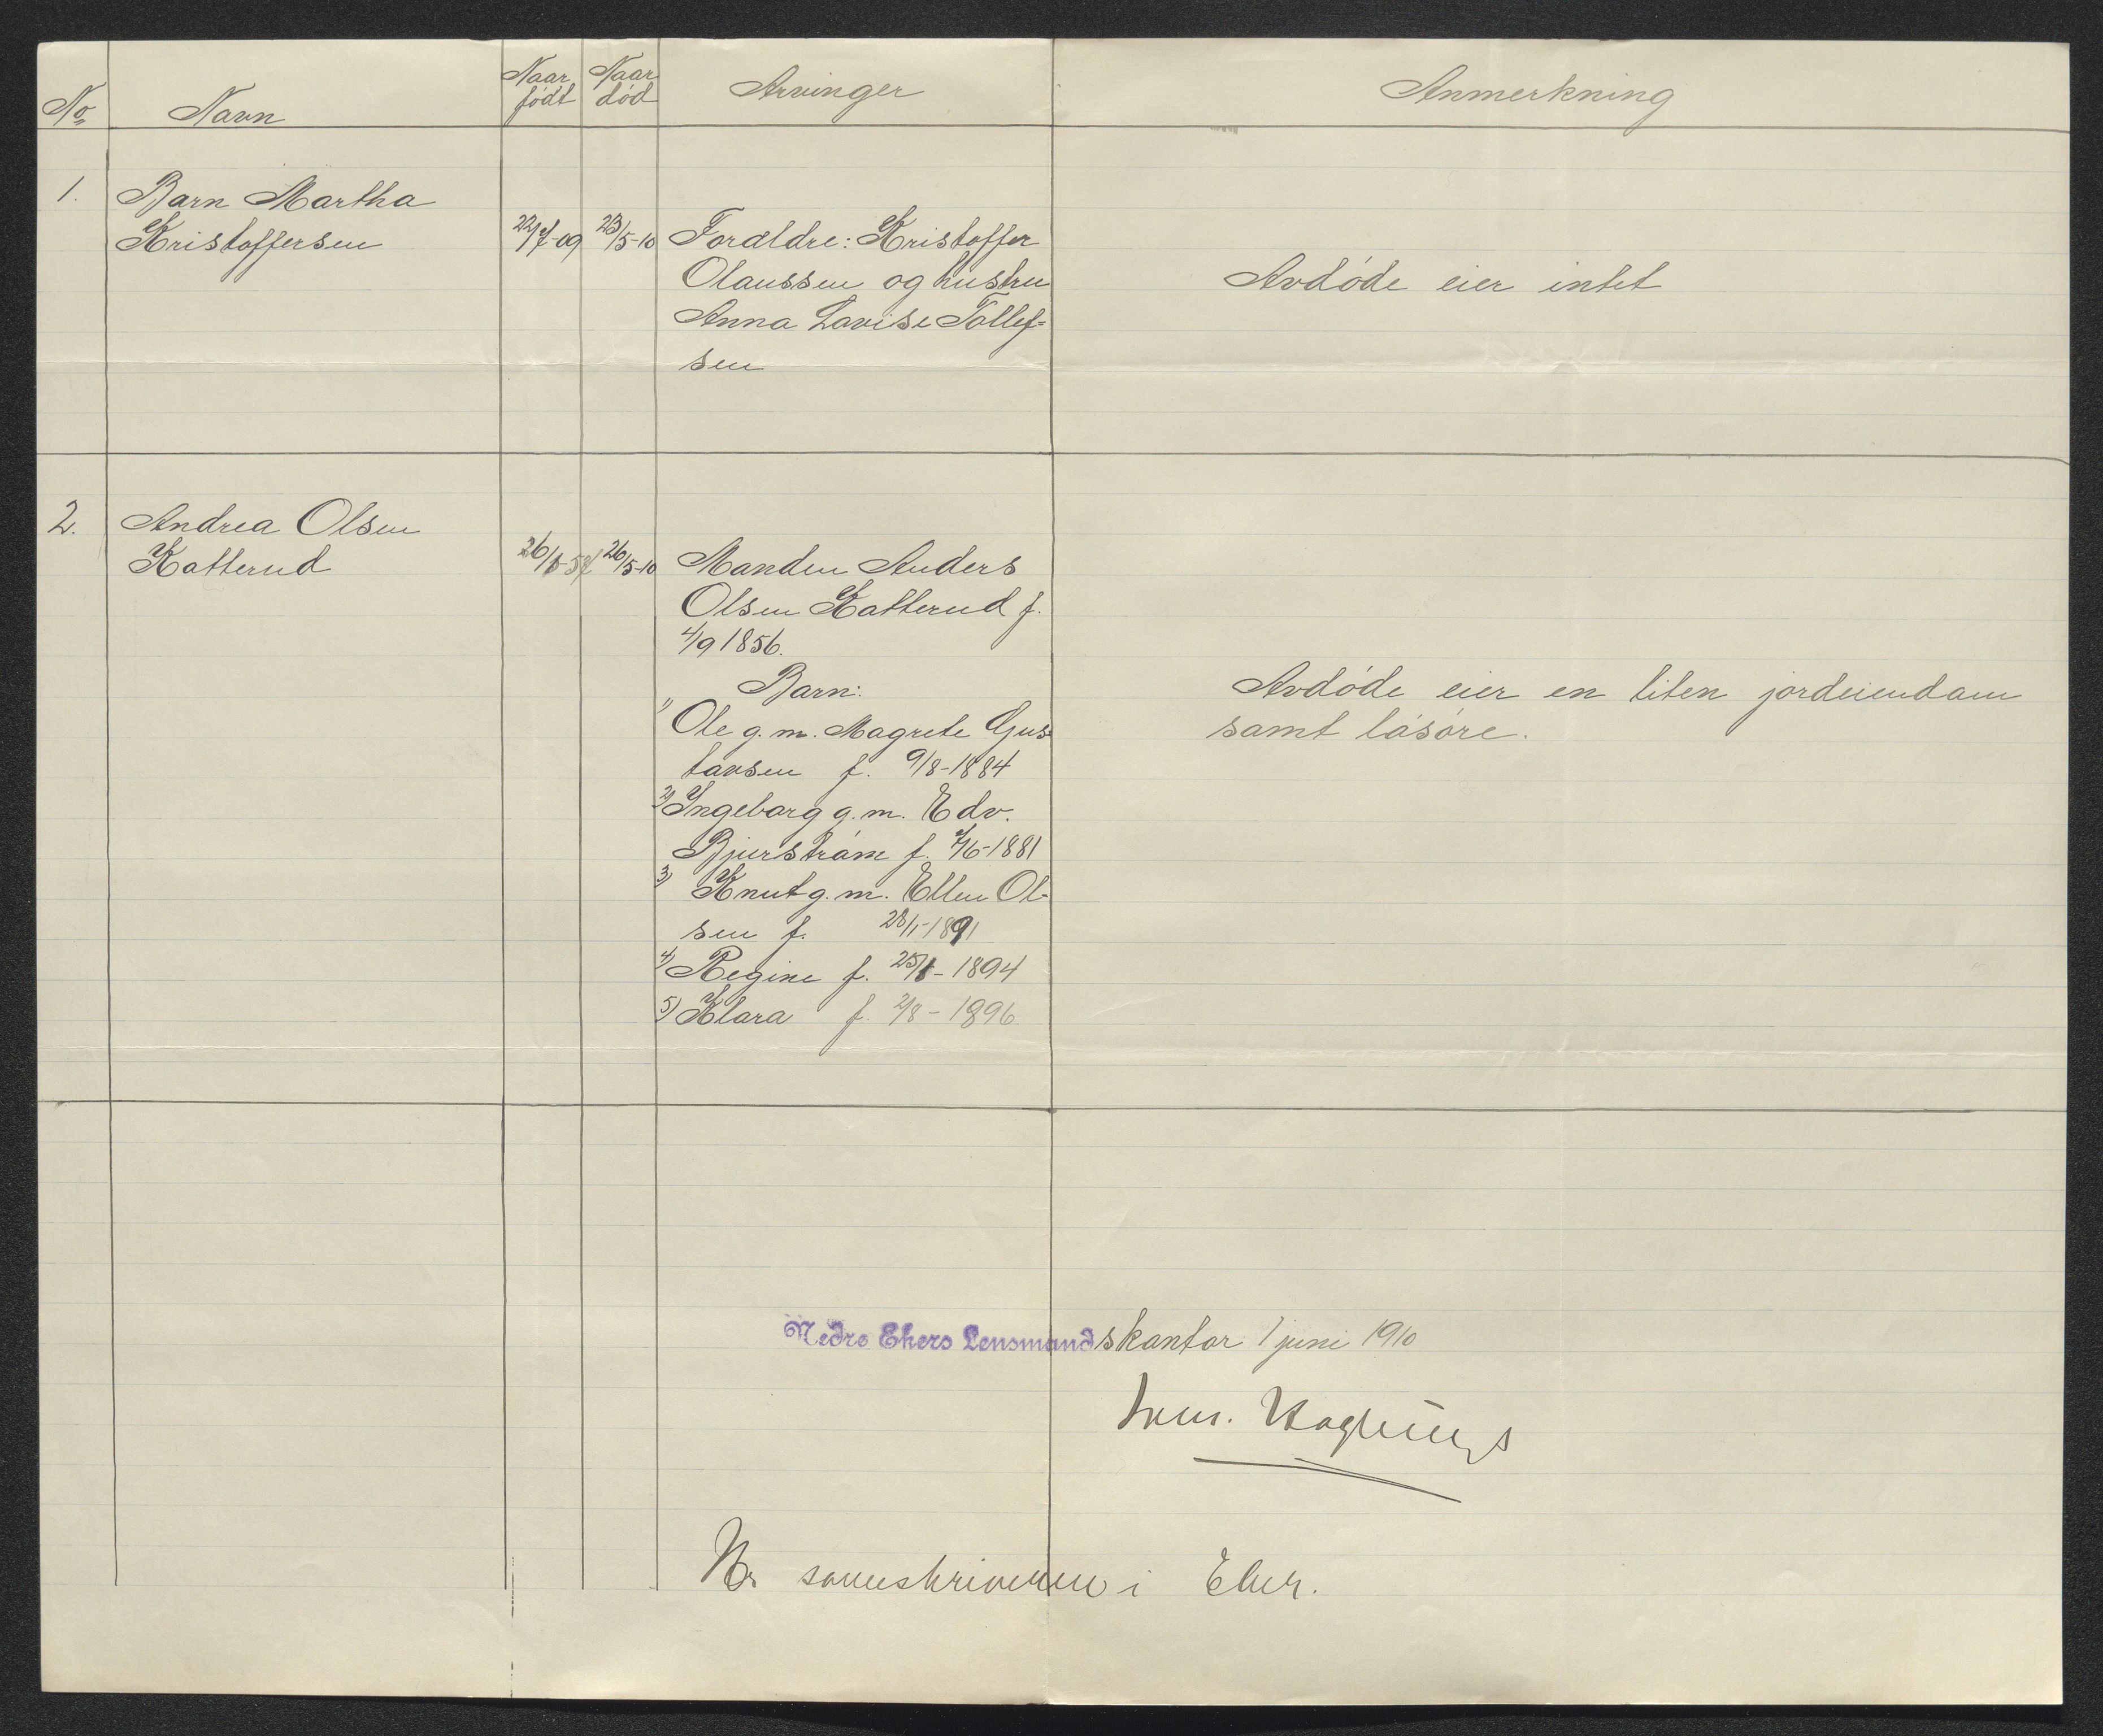 No Navn Naar født Naar død Arvinger Anmerkning
1. Barn Martha
Kristoffersen 22/7-09 23/5-10 Forældre: Kristoffer
Olaussen og hustru
Anna Lovise Tollef-
sen
Avdøde eier intet
2. Andrea Olsen
Katterud 26/5-10 Manden Anders
Olsen Katterud f.
4/9 1856.
Barn:
1) Ole g. m. Magrete Gus
tavsen f. 9/8-1884
2) Ingeborg g. m. Edv.
Bjurstrøm f. /6-1881
3) Knut g. m. Ellen Ol-
sen f. 28/1-1891
4) Regine f. 1894
5) Klara f. 2/8-1896
Avdøde eier en liten jordeiendam
samt løsøre.
Nedre Ekers Lensmandskontor 1 juni 1910
Hr sorenskriveren i Eker.